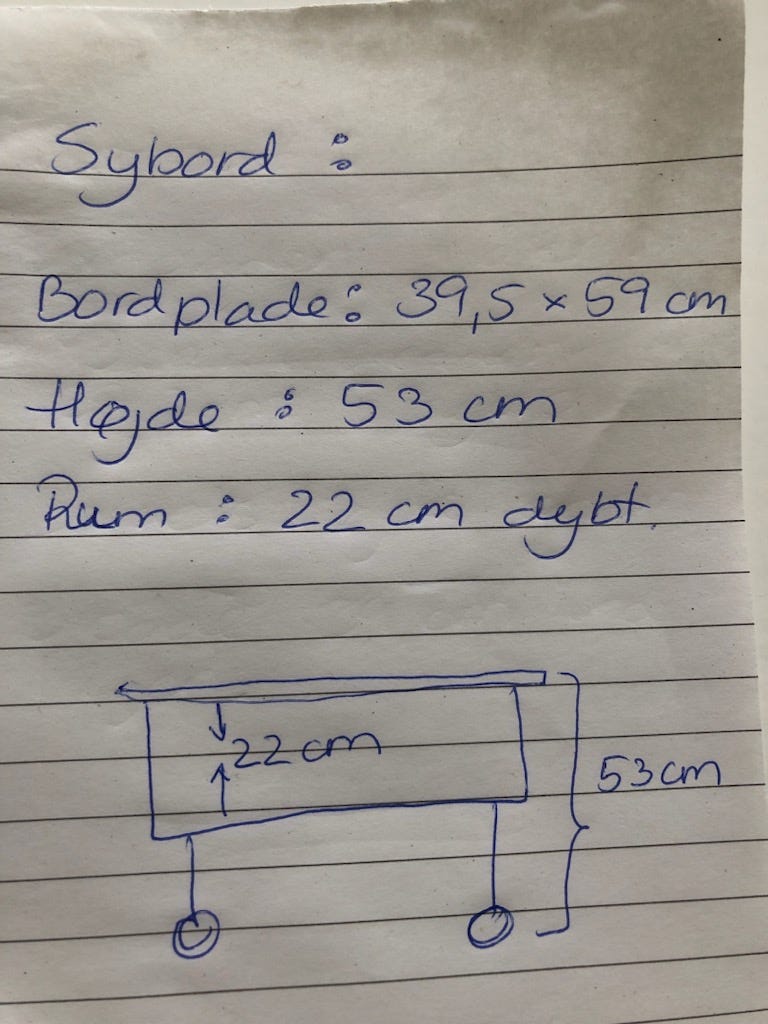 Sybord :
Bordplade: 39,5 x 59 cm
Højde : 53 cm
Rum : 22 cm dybt.
22 cm
53 cm